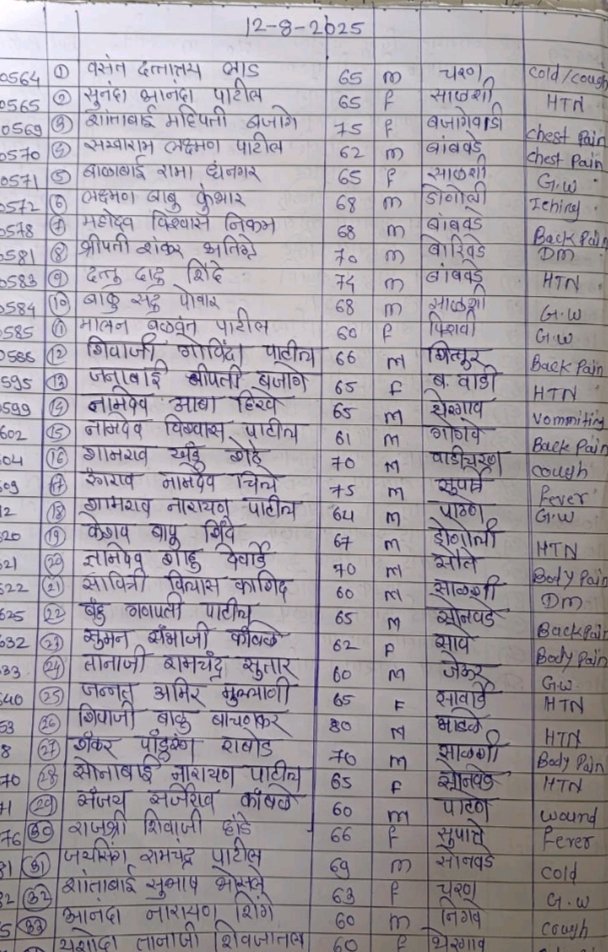 12-8-2025
0564 ① वसंत दत्तात्रय लाड 65 m चरण cold/cough
0565 ② सुनंदा आनंदा पाटील 65 f साळशी HTN
0569 ③ शांताबाई महिपती बजागे 75 f बजागेवाडी chest Pain
0570 ④ सखाराम लक्ष्मण पाटील 62 m बांबवडे chest Pain
0571 ⑤ बाळाबाई रामा धनगर 65 f साळशी G.W
0572 ⑥ लक्ष्मण बाबु कुंभार 68 m डोणोली Iching
0578 ⑦ महादेव विश्वास निकम 68 m बांबवडे Back Pain
0581 ⑧ श्रीपती शंकर 70 m DM
0583 ⑨ दत्तु दादु शिंदे 74 m बांबवडे HTN
0584 ⑩ बाकु सदु पोवार 68 m साळशी G.W
0585 ⑪ मालन बळवंत पाटील 60 f पिशवी G.W
0586 ⑫ शिवाजी गोविंदा पाटील 66 M शित्तुर Back Pain
595 ⑬ जनाबाई श्रीपती बजागे 65 F ब. वाडी HTN
0599 ⑭ नामदेव आबा हिरवे 65 M शेरगाव vommiting
602 ⑮ नामदेव विश्वास पाटील 61 M गोगवे Back Pain
604 ⑯ शामराव खंडु 70 M वाडीचरण cough
609 ⑰ रंगराव नामदेव चिले 75 M सुपात्रे fever
12 ⑱ शामराव नारायण पाटील 64 M G.W
620 ⑲ केशव बापु शिंदे 67 M डोणोली HTN
621 ⑳ ज्ञानदेव शाहु देवार्डे 70 M सोते Body Pain
622 ㉑ सावित्री विलास कागिद 60 M साळशी DM
625 ㉒ बंडु गणपती पाटील 65 M सोनवडे Backpain
632 ㉓ सुमन संभाजी कांबळे 62 F सावे Body Pain
633 ㉔ तानाजी रामचंद्र सुतार 60 M जेऊर G.W.
640 ㉕ जन्नत अमिर मुल्लाणी 65 F सावार्डे HTN
53 ㉖ शिवाजी बाळु बाचणकर 80 M भाडळे HTN
8 ㉗ शंकर पांडुरंग राबोड 70 M साळशी Body Pain
70 ㉘ सोनाबाई नारायण पाटील 65 F सोनवडे HTN
71 ㉙ संजय सर्जेराव कांबळे 60 M पाटणे wound
76 ㉚ राजश्री शिवाजी हांडे 66 f सुपात्रे fever
81 ㉛ जयसिंग रामचंद्र पाटील 69 m सोनवडे cold
82 ㉜ शांताबाई सुभाष भोसले 63 f चरण G.W
5 ㉝ आनंदा नारायण शिंगे 60 m निगवे cough
यशोदा तानाजी 60 f शेरगाव